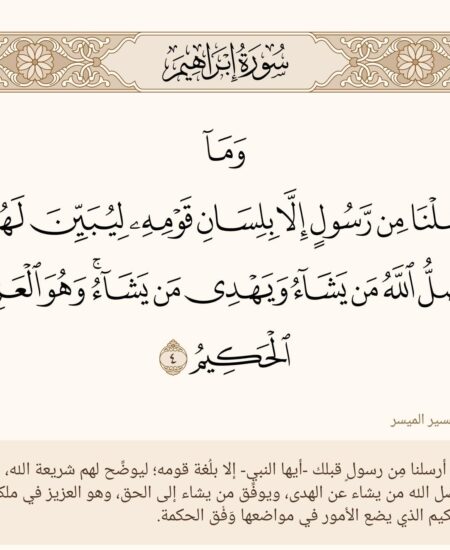 سُورَةُ إِبْرَاهِيمَ
وَمَآ
مِن رَّسُولٍ إِلَّا بِلِسَانِ قَوْمِهِۦ لِيُبَيِّنَ
ٱللَّهُ مَن يَشَآءُ وَيَهْدِى مَن يَشَآءُۚ وَهُوَ
ٱلْحَكِيمُ ٤
الميسر
أرسلنا مِن رسولٍ قبلك -أيها النبي- إلا بلُغة قومه؛ ليوضِّح لهم شريعة الله،
الله من يشاء عن الهدى، ويوفِّق من يشاء إلى الحق، وهو العزيز في
الذي يضع الأمور في مواضعها وَفْق الحكمة.